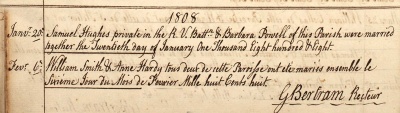 1808
Janv: 20: Samuel Hughes private in the R. V. Battn: & Barbara Powell of this Parish were married
together the Twentieth day of January One Thousand Eight hundred & Eight.
Fevr: 6: William Smith & Anne Hardy tous deux de cette Paroisse ont eté mariés ensemble le
Sixieme Jour du Mois de Fevrier Mille huit Cents huit
G Bertram Recteur